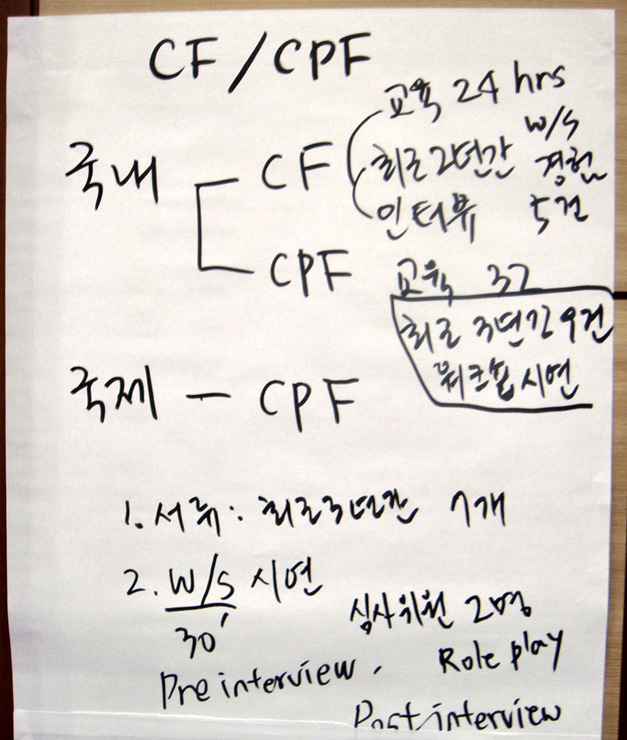 CF / CPF
교육 24 hrs
국내
CF
최근 2년간
w/s
경험
인터뷰
5건
CPF
교육 32
최근 3년간 9건
워크숍 시연
국제 - CPF
1. 서류 : 최근 3년간 7개
2. W/S 시연
30'
심사위원 2명
Pre interview , Role play
Post interview